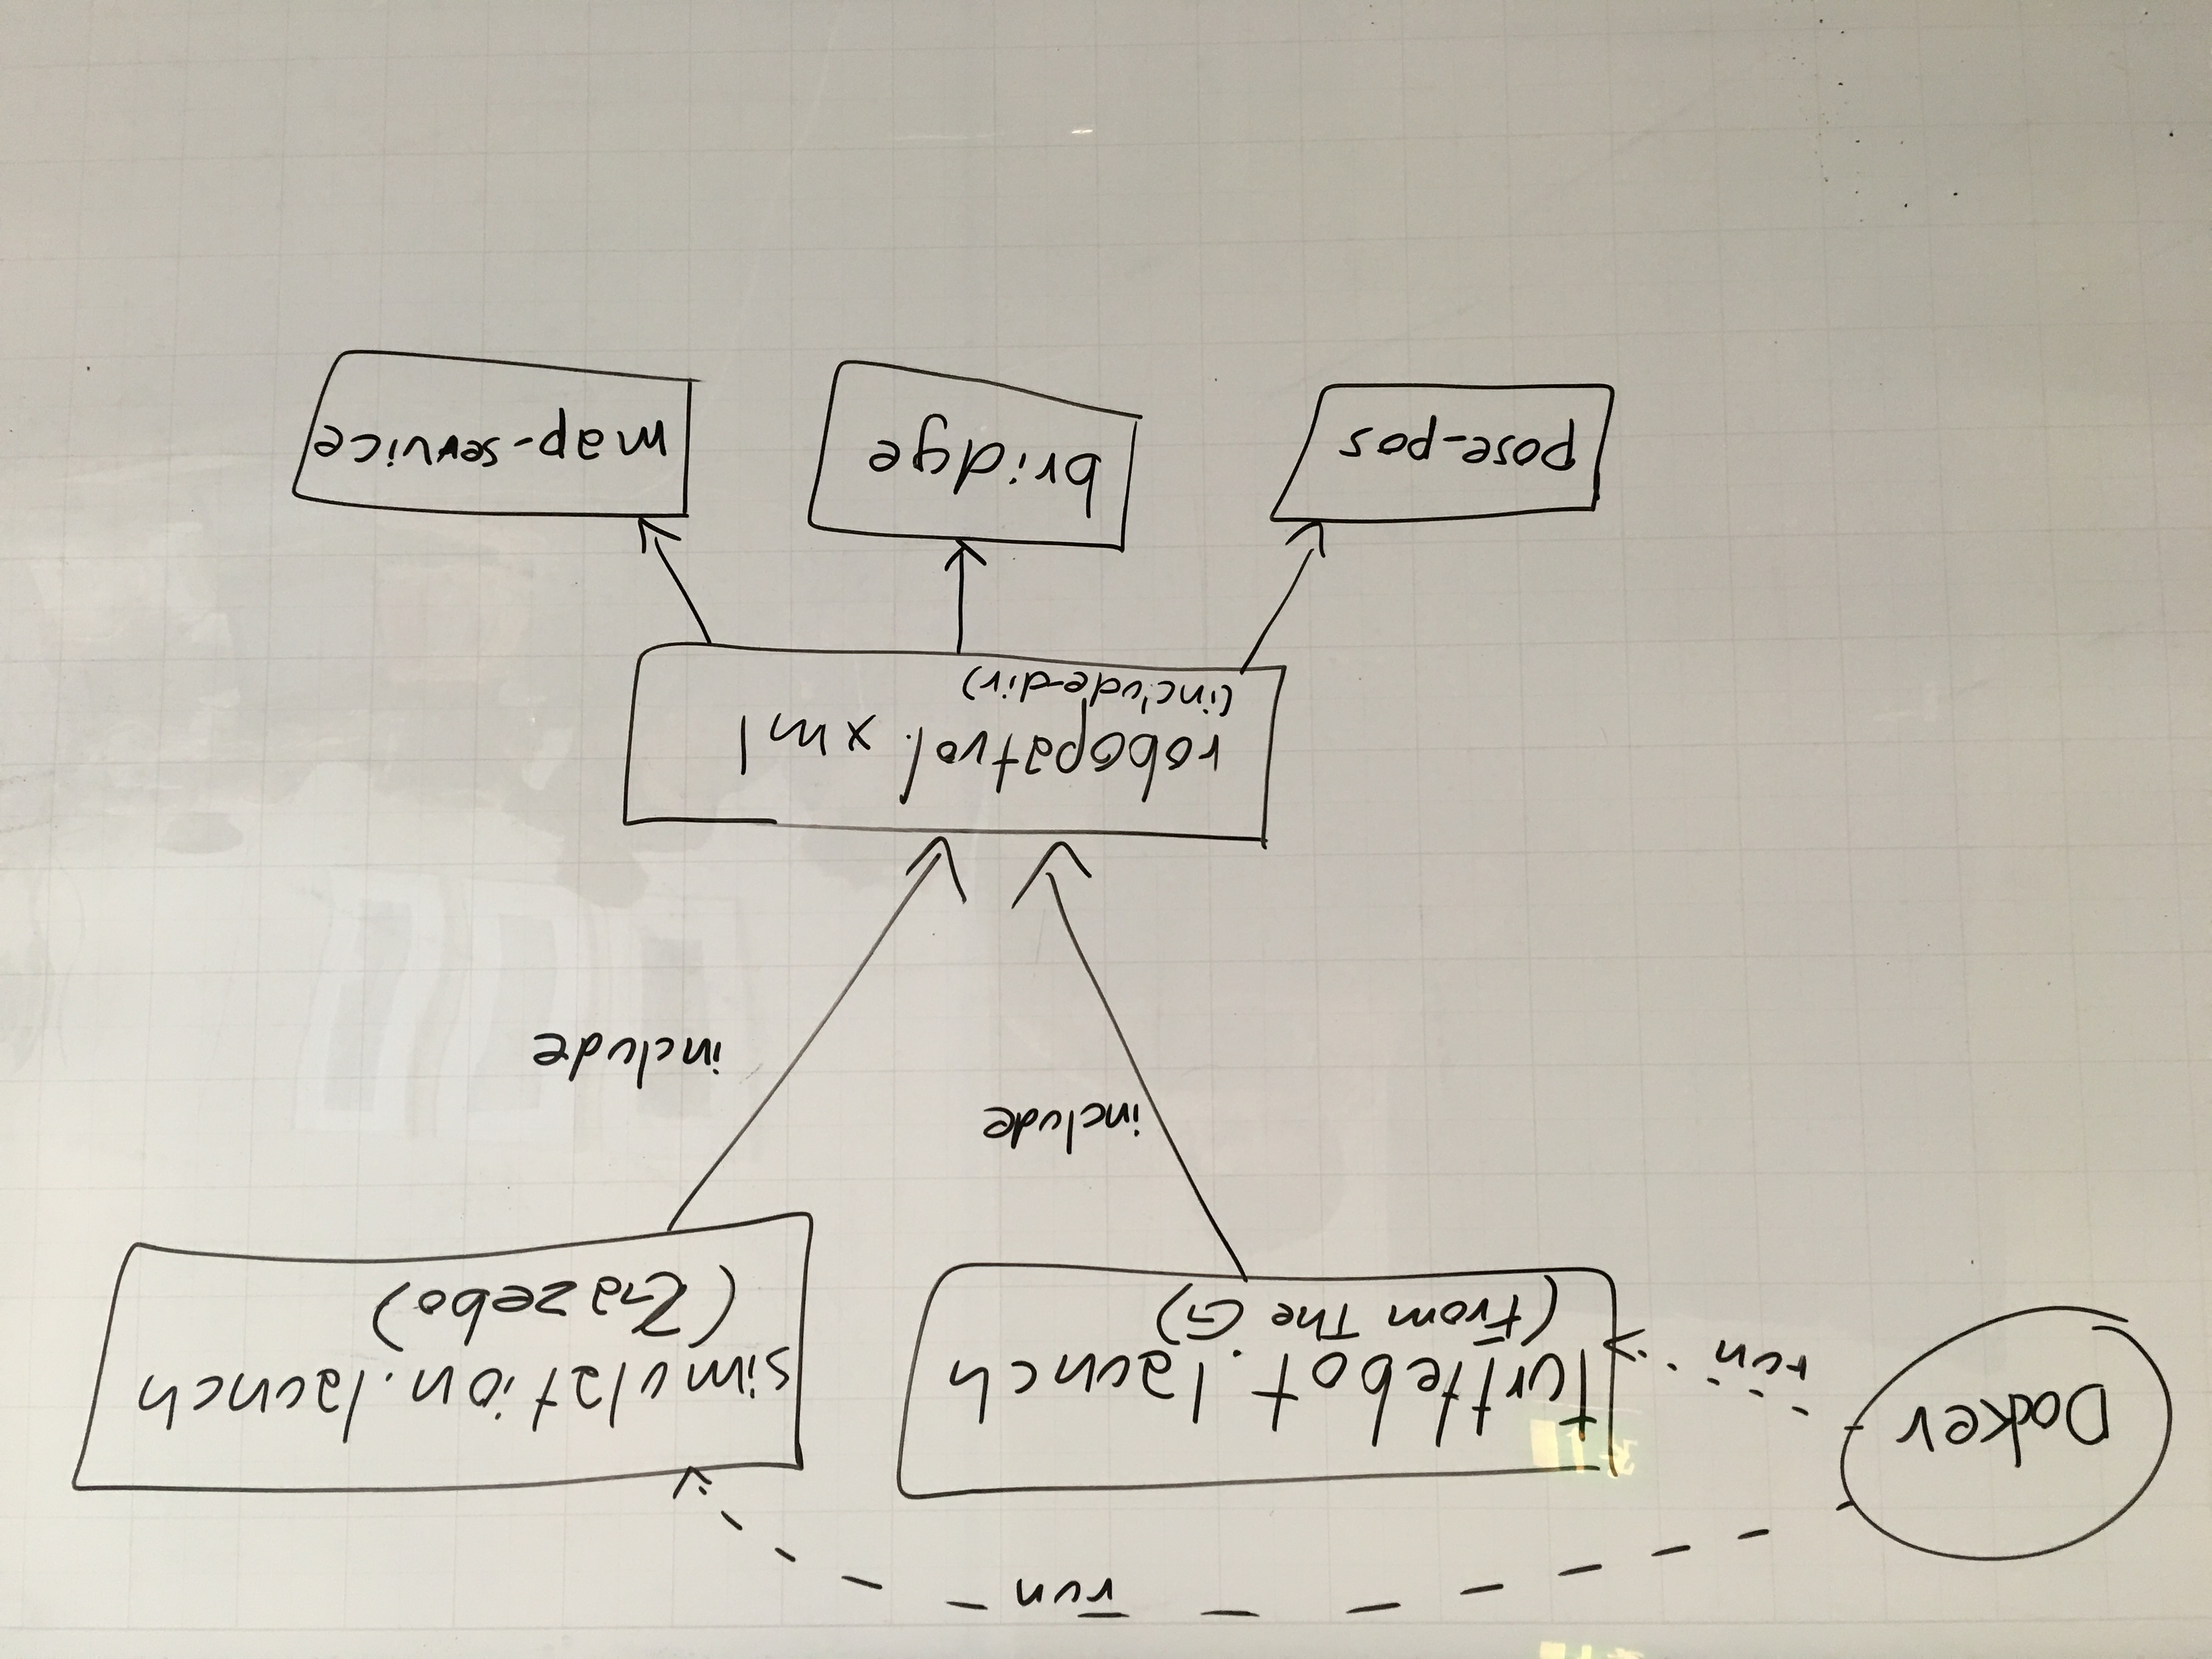 run
Docker
run
turtlebot.launch
(From The G)
simulation.launch
(Gazebo)
include
include
robopatrol.xml
(include-dir)
pose_pos
bridge
map-service